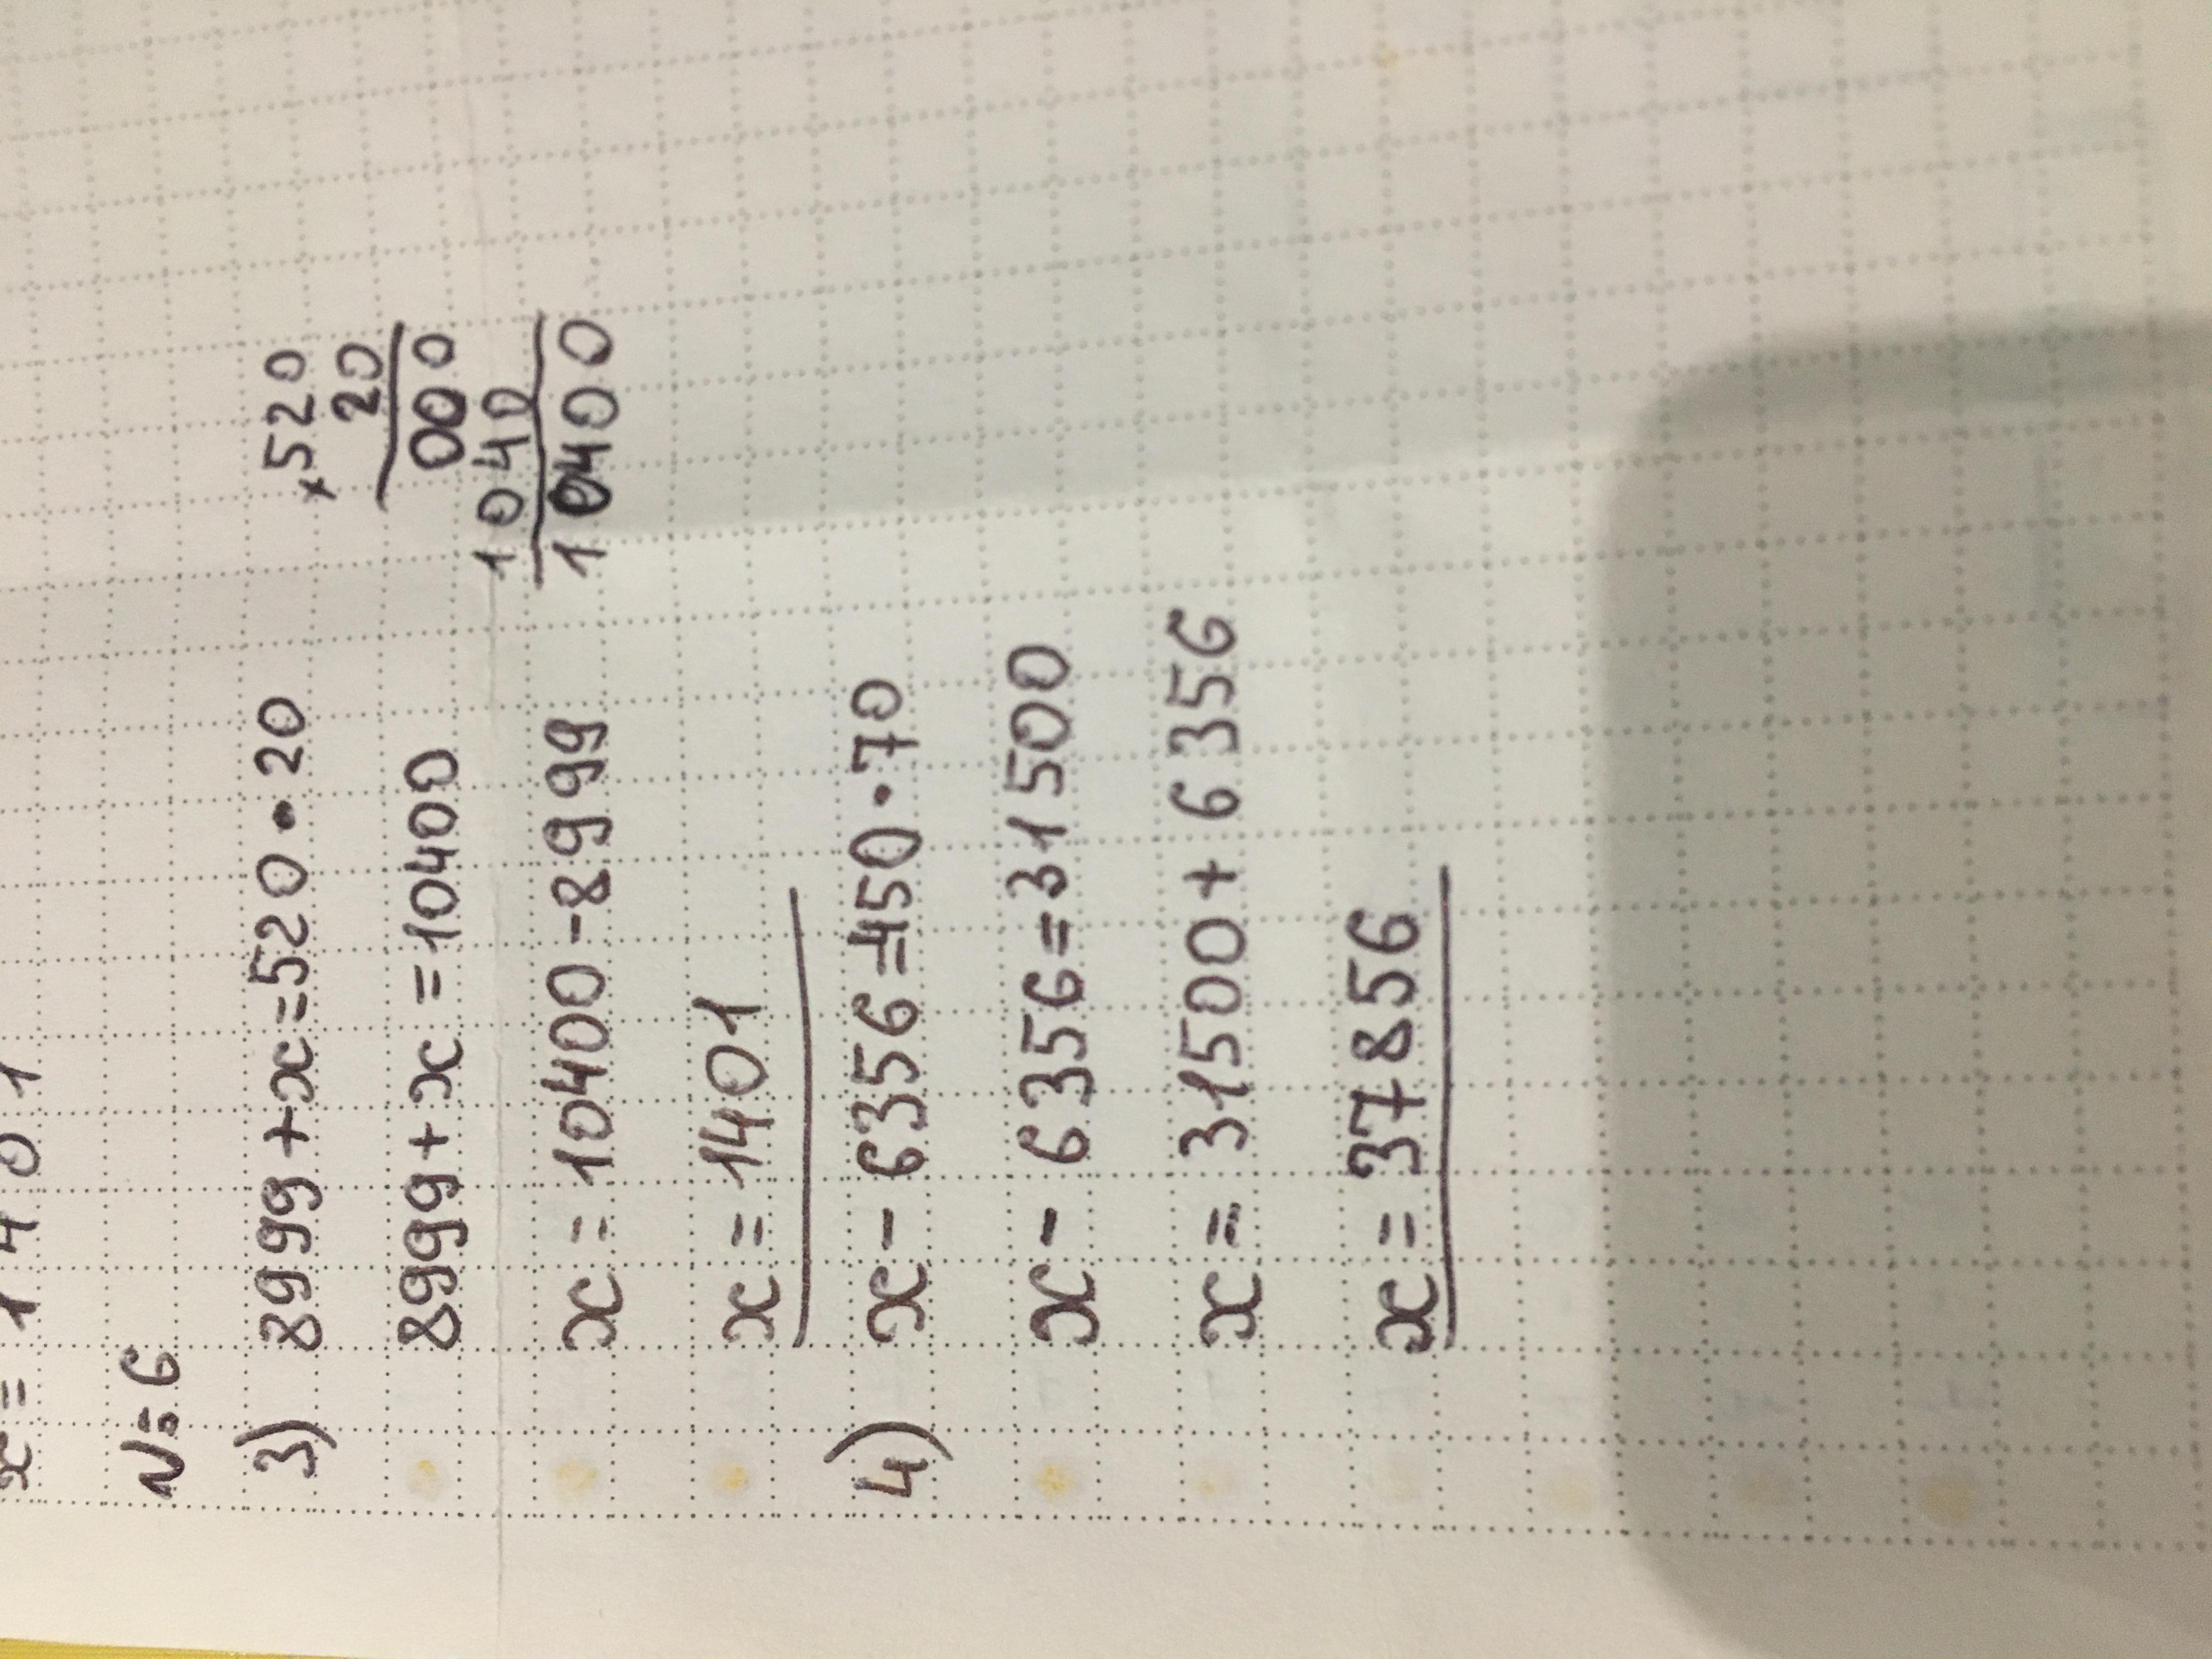 x = 1401
N=6
3) 8999+x=520•20
×520
20
000
1040
10400
8999+x=10400
x=10400-8999
x=1401
4) x-6356=450·70
x-6356=31500
x=31500+6356
x=37856